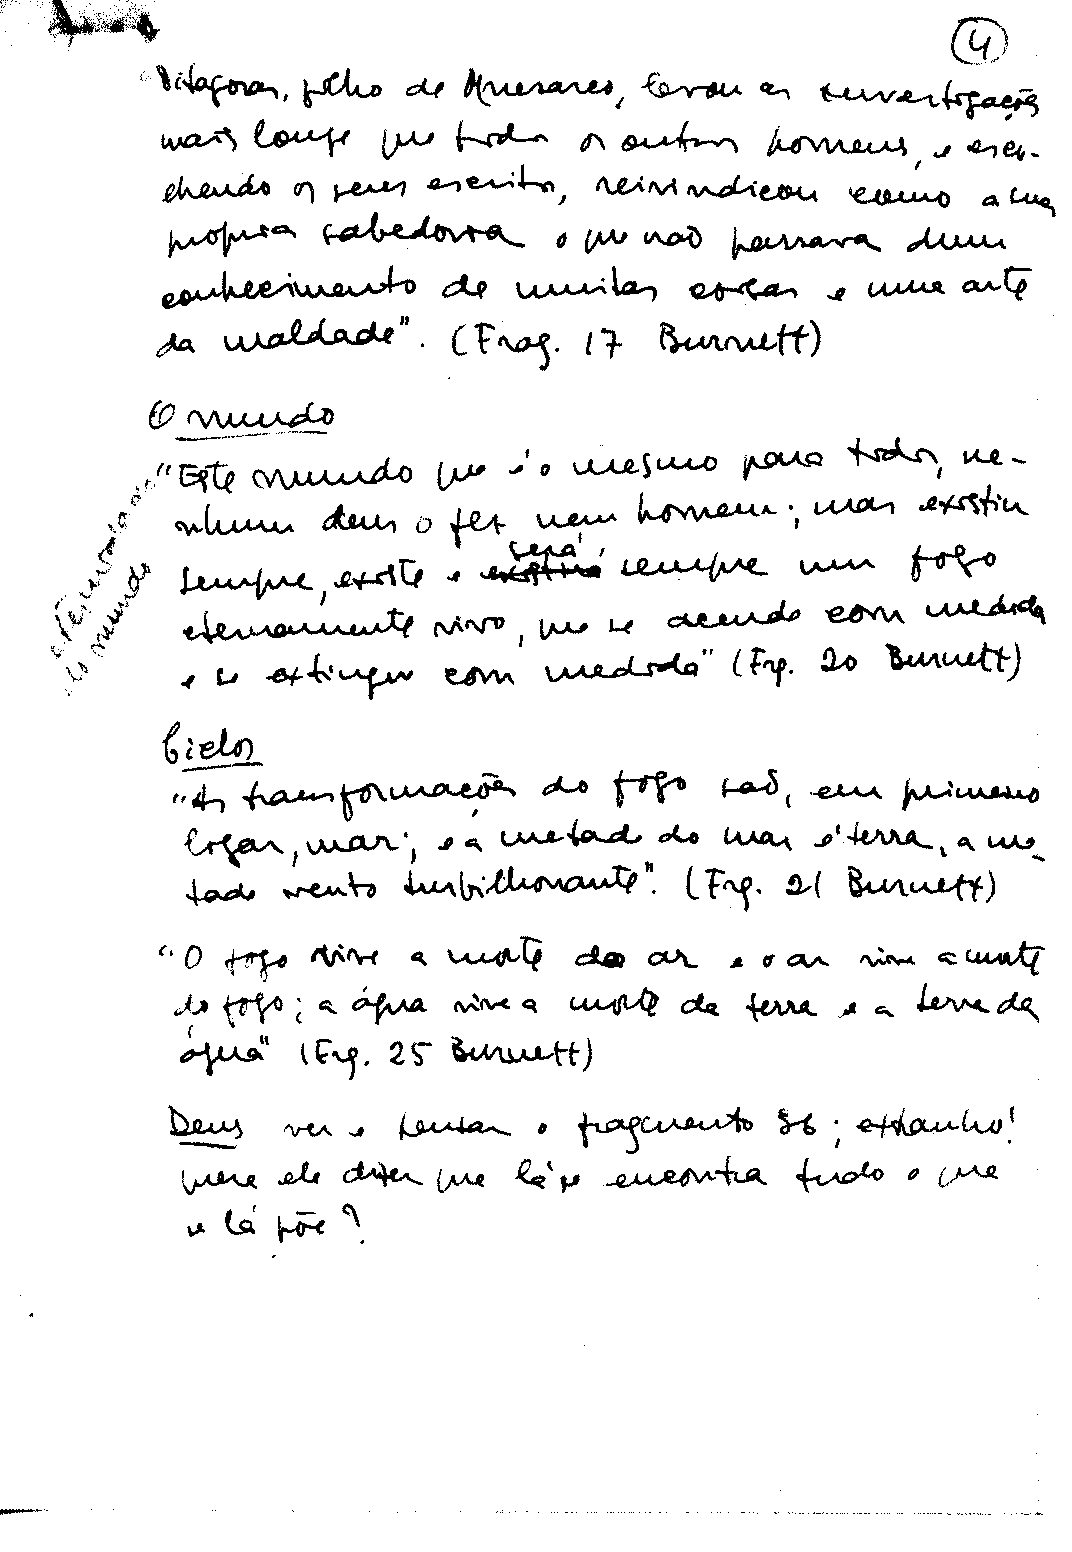 4
"Pitágoras, filho de Mnesarco, levou as investigações
mais longe que todos os outros homens, e esco-
lhendo os seus escritos, reivindicou como a sua
própria sabedoria o que não passava dum
conhecimento de muitas coisas e uma arte
da maldade". (Frag. 17 Burnett)
O mundo
"Este mundo que é o mesmo para todos, ne-
nhum deus o fez nem homem; mas existiu
sempre, existe e será sempre um fogo
eternamente vivo, que se acende com medida
e se extingue com medida" (Frg. 20 Burnett)
do mundo
Ciclos
"As transformações do fogo são, em primeiro
lugar, mar; e a metade do mar é terra, a me-
tade vento turbilhonante". (Frg. 21 Burnett)
"O fogo vive a morte do ar e o ar vive a morte
do fogo; a água vive a morte da terra e a terra da
água" (Frg. 25 Burnett)
Deus ver e pensar o fragmento 36; estranho!
quere ele dizer que lá se encontra tudo o que
se lá põe?